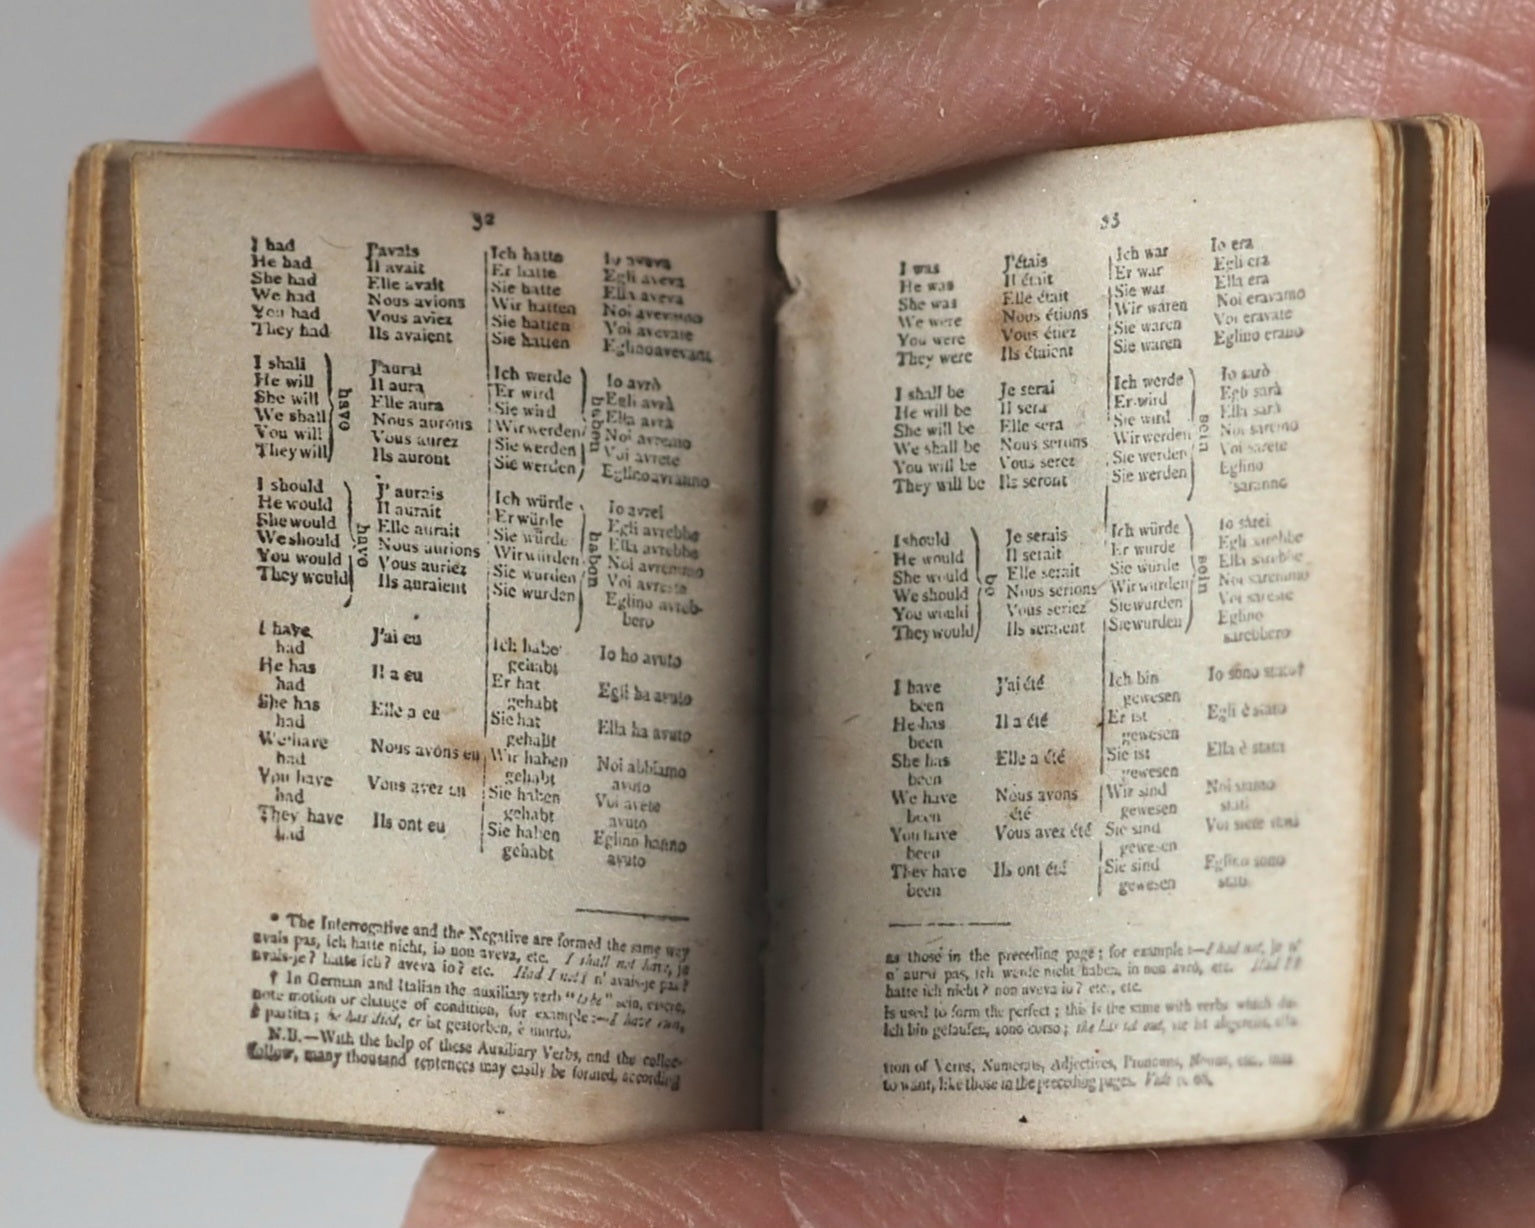 32
I had J'avais Ich hatte Io aveva
He had Il avait Er hatte Egli aveva
She had Elle avait Sie hatte Ella aveva
We had Nous avions Wir hatten Noi avevamo
You had Vous aviez Sie hatten Voi avevate
They had Ils avaient Sie hatten Eglino avevano
I shall J'aurai Ich werde Io avrò
He will Il aura Er wird Egli avrà
She will Elle aura Sie wird Ella avrà
have haben
We shall Nous aurons Wir werden Noi avremo
You will Vous aurez Sie werden Voi avrete
They will Ils auront Sie werden Eglino avranno
I should J' aurais Ich würde Io avrei
He would Il aurait Er würde Egli avrebbe
She would Elle aurait Sie würde Ella avrebbe
have haben
We should Nous aurions Wir würden Noi avremmo
You would Vous auriez Sie wurden Voi avreste
They would Ils auraient Sie wurden Eglino avreb-
bero
I have J'ai eu Ich habe Io ho avuto
had gehabt
He has Il a eu Er hat Egli ha avuto
had gehabt
She has Elle a eu Sie hat Ella ha avuto
had gehabt
We have Nous avons eu Wir haben Noi abbiamo
had gehabt avuto
You have Vous avez eu Sie haben Voi avete
had gehabt avuto
They have Ils ont eu Sie haben Eglino hanno
had gehabt avuto
* The Interrogative and the Negative are formed the same way
avais pas, ich hatte nicht, io non aveva, etc. I shall not have, je
avais-je? hatte ich? aveva io? etc. Had I not? n' avais-je pas?
† In German and Italian the auxiliary verb "to be" sein, essere,
note motion or change of condition, for example:—I have run,
è partita; he has died, er ist gestorben, è morto.
N.B.—With the help of these Auxiliary Verbs, and the collec-
follow, many thousand sentences may easily be formed, according
33
I was J'étais Ich war Io era
He was Il était Er war Egli era
She was Elle était Sie war Ella era
We were Nous étions Wir waren Noi eravamo
You were Vous étiez Sie waren Voi eravate
They were Ils étaient Sie waren Eglino erano
I shall be Je serai Ich werde Io sarò
He will be Il sera Er wird Egli sarà
She will be Elle sera Sie wird Ella sarà
sein
We shall be Nous serons Wir werden Noi saremo
You will be Vous serez Sie werden Voi sarete
They will be Ils seront Sie werden Eglino
saranno
I should Je serais Ich würde Io sarei
He would Il serait Er wurde Egli sarebbe
She would Elle serait Sie wurde Ella sarebbe
be sein
We should Nous serions Wir wurden Noi saremmo
You would Vous seriez Sie wurden Voi sareste
They would Ils seraient Sie wurden Eglino
sarebbero
I have J'ai été Ich bin Io sono stato†
been gewesen
He has Il a été Er ist Egli è stato
been gewesen
She has Elle a été Sie ist Ella è stata
been gewesen
We have Nous avons Wir sind Noi siamo
been été gewesen stati
You have Vous avez été Sie sind Voi siete stati
been gewesen
They have Ils ont été Sie sind Eglino sono
been gewesen stati
as those in the preceding page; for example:—I had not, je n'
n' aurai pas, ich werde nicht haben, io non avrò, etc. Had
hatte ich nicht? non aveva io? etc., etc.
Is used to form the perfect; this is the same with verbs which de-
Ich bin gelaufen, sono corso; she has set out, sie ist abgereist, ella
tion of Verbs, Numerals, Adjectives, Pronouns, Nouns, etc., that
to want, like those in the preceding pages. Vide p.